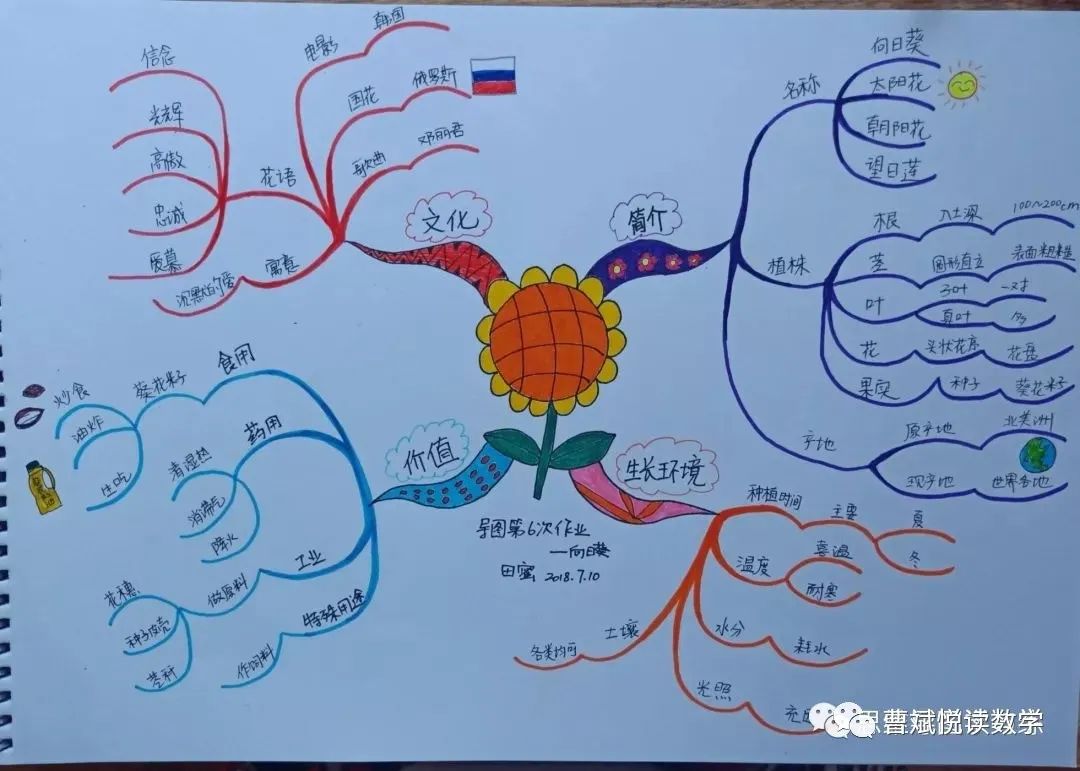 文化
电影
韩国
国花
俄罗斯
歌曲
邓丽君
花语
信念
光辉
高傲
忠诚
爱慕
寓意
沉默的爱
简介
名称
向日葵
太阳花
朝阳花
望日莲
植株
根
入土深
100~200cm
茎
圆形直立
表面粗糙
叶
子叶
一对
真叶
多
花
头状花序
花盘
果实
种子
葵花籽
产地
原产地
北美洲
现产地
世界各地
价值
食用
葵花籽
炒食
油炸
生吃
药用
清湿热
消滞气
降火
工业
做原料
花穗
种子皮壳
茎秆
特殊用途
作饲料
生长环境
种植时间
主要
夏
冬
温度
喜温
耐寒
水分
耗水
光照
充
土壤
各类均可
导图第6次作业
—向日葵
田蜜 2018.7.10
思曹斌悦读数学